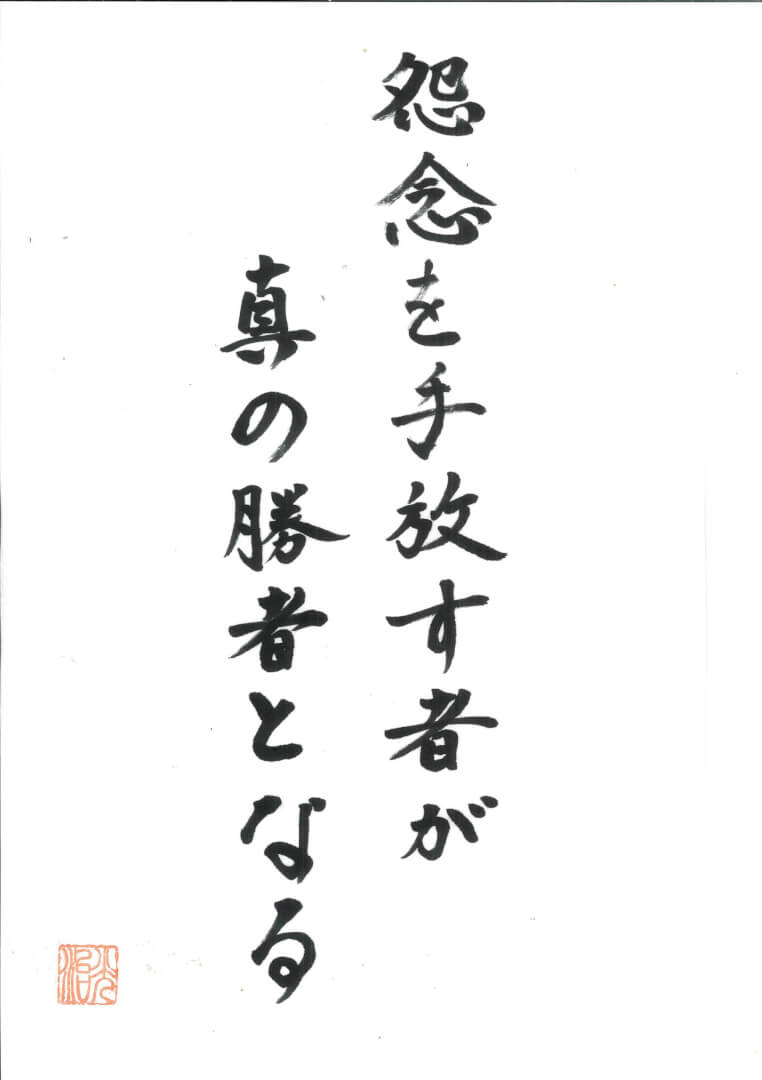 怨念を手放す者が
真の勝者となる